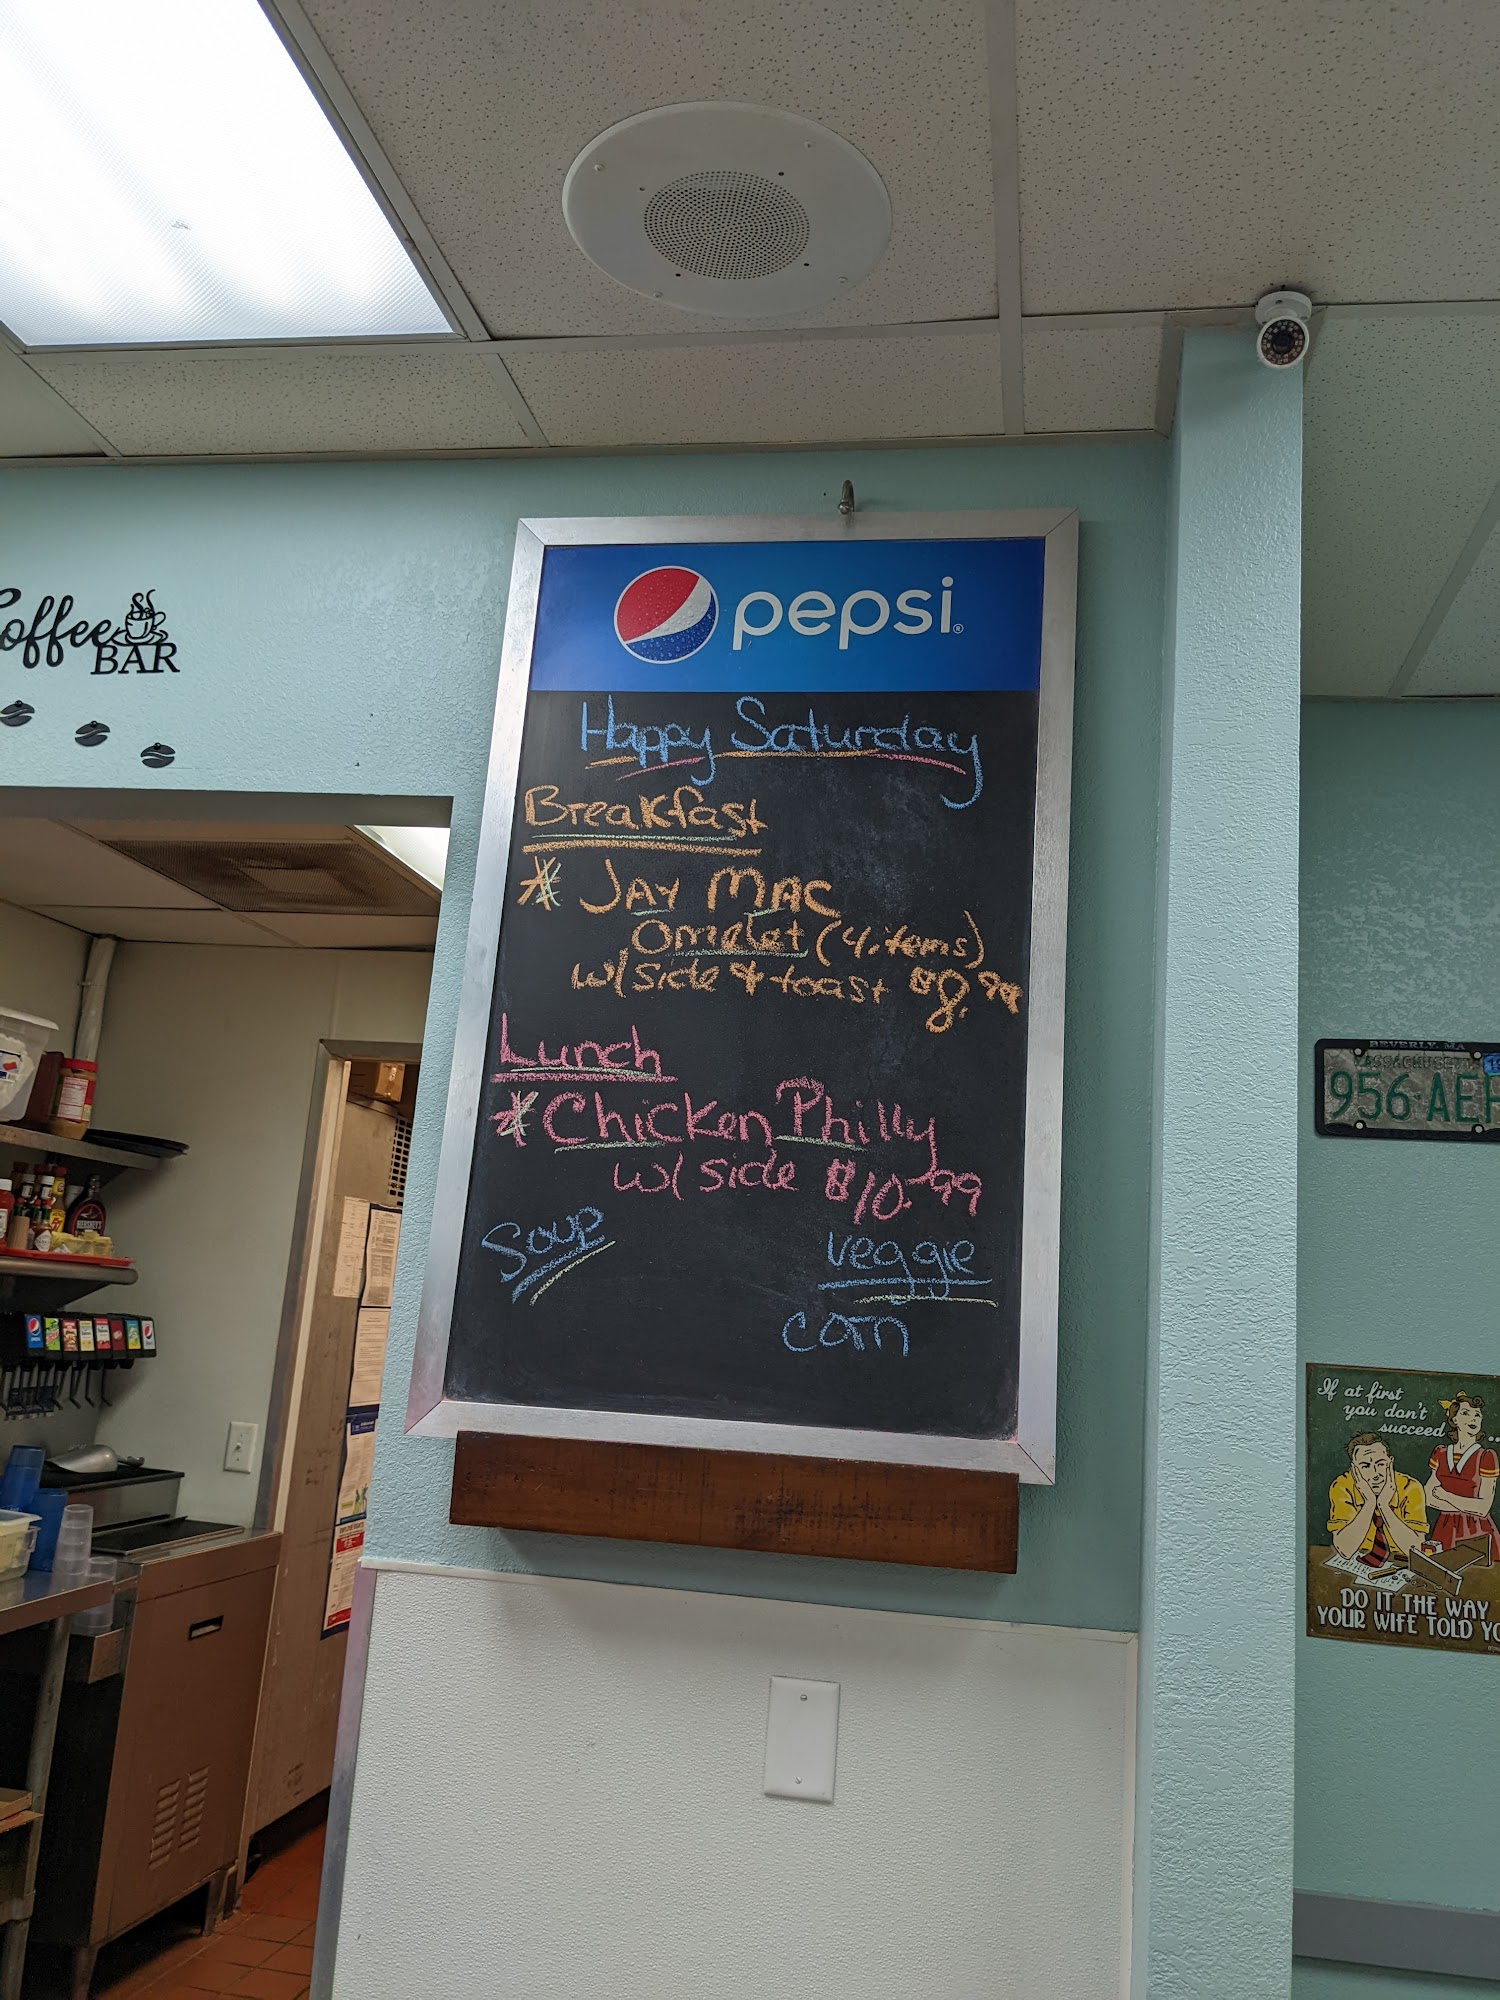 pepsi
Happy Saturday
Breakfast
* JAY MAC
Omelet (4 items)
w/ side & toast $8.99
Lunch
* Chicken Philly
w/ side $10.99
Soup
veggie
corn
Coffee
BAR
BEVERLY, MA
MASSACHUSETTS
956·AE
If at first
you don't
succeed...
DO IT THE WAY
YOUR WIFE TOLD YO